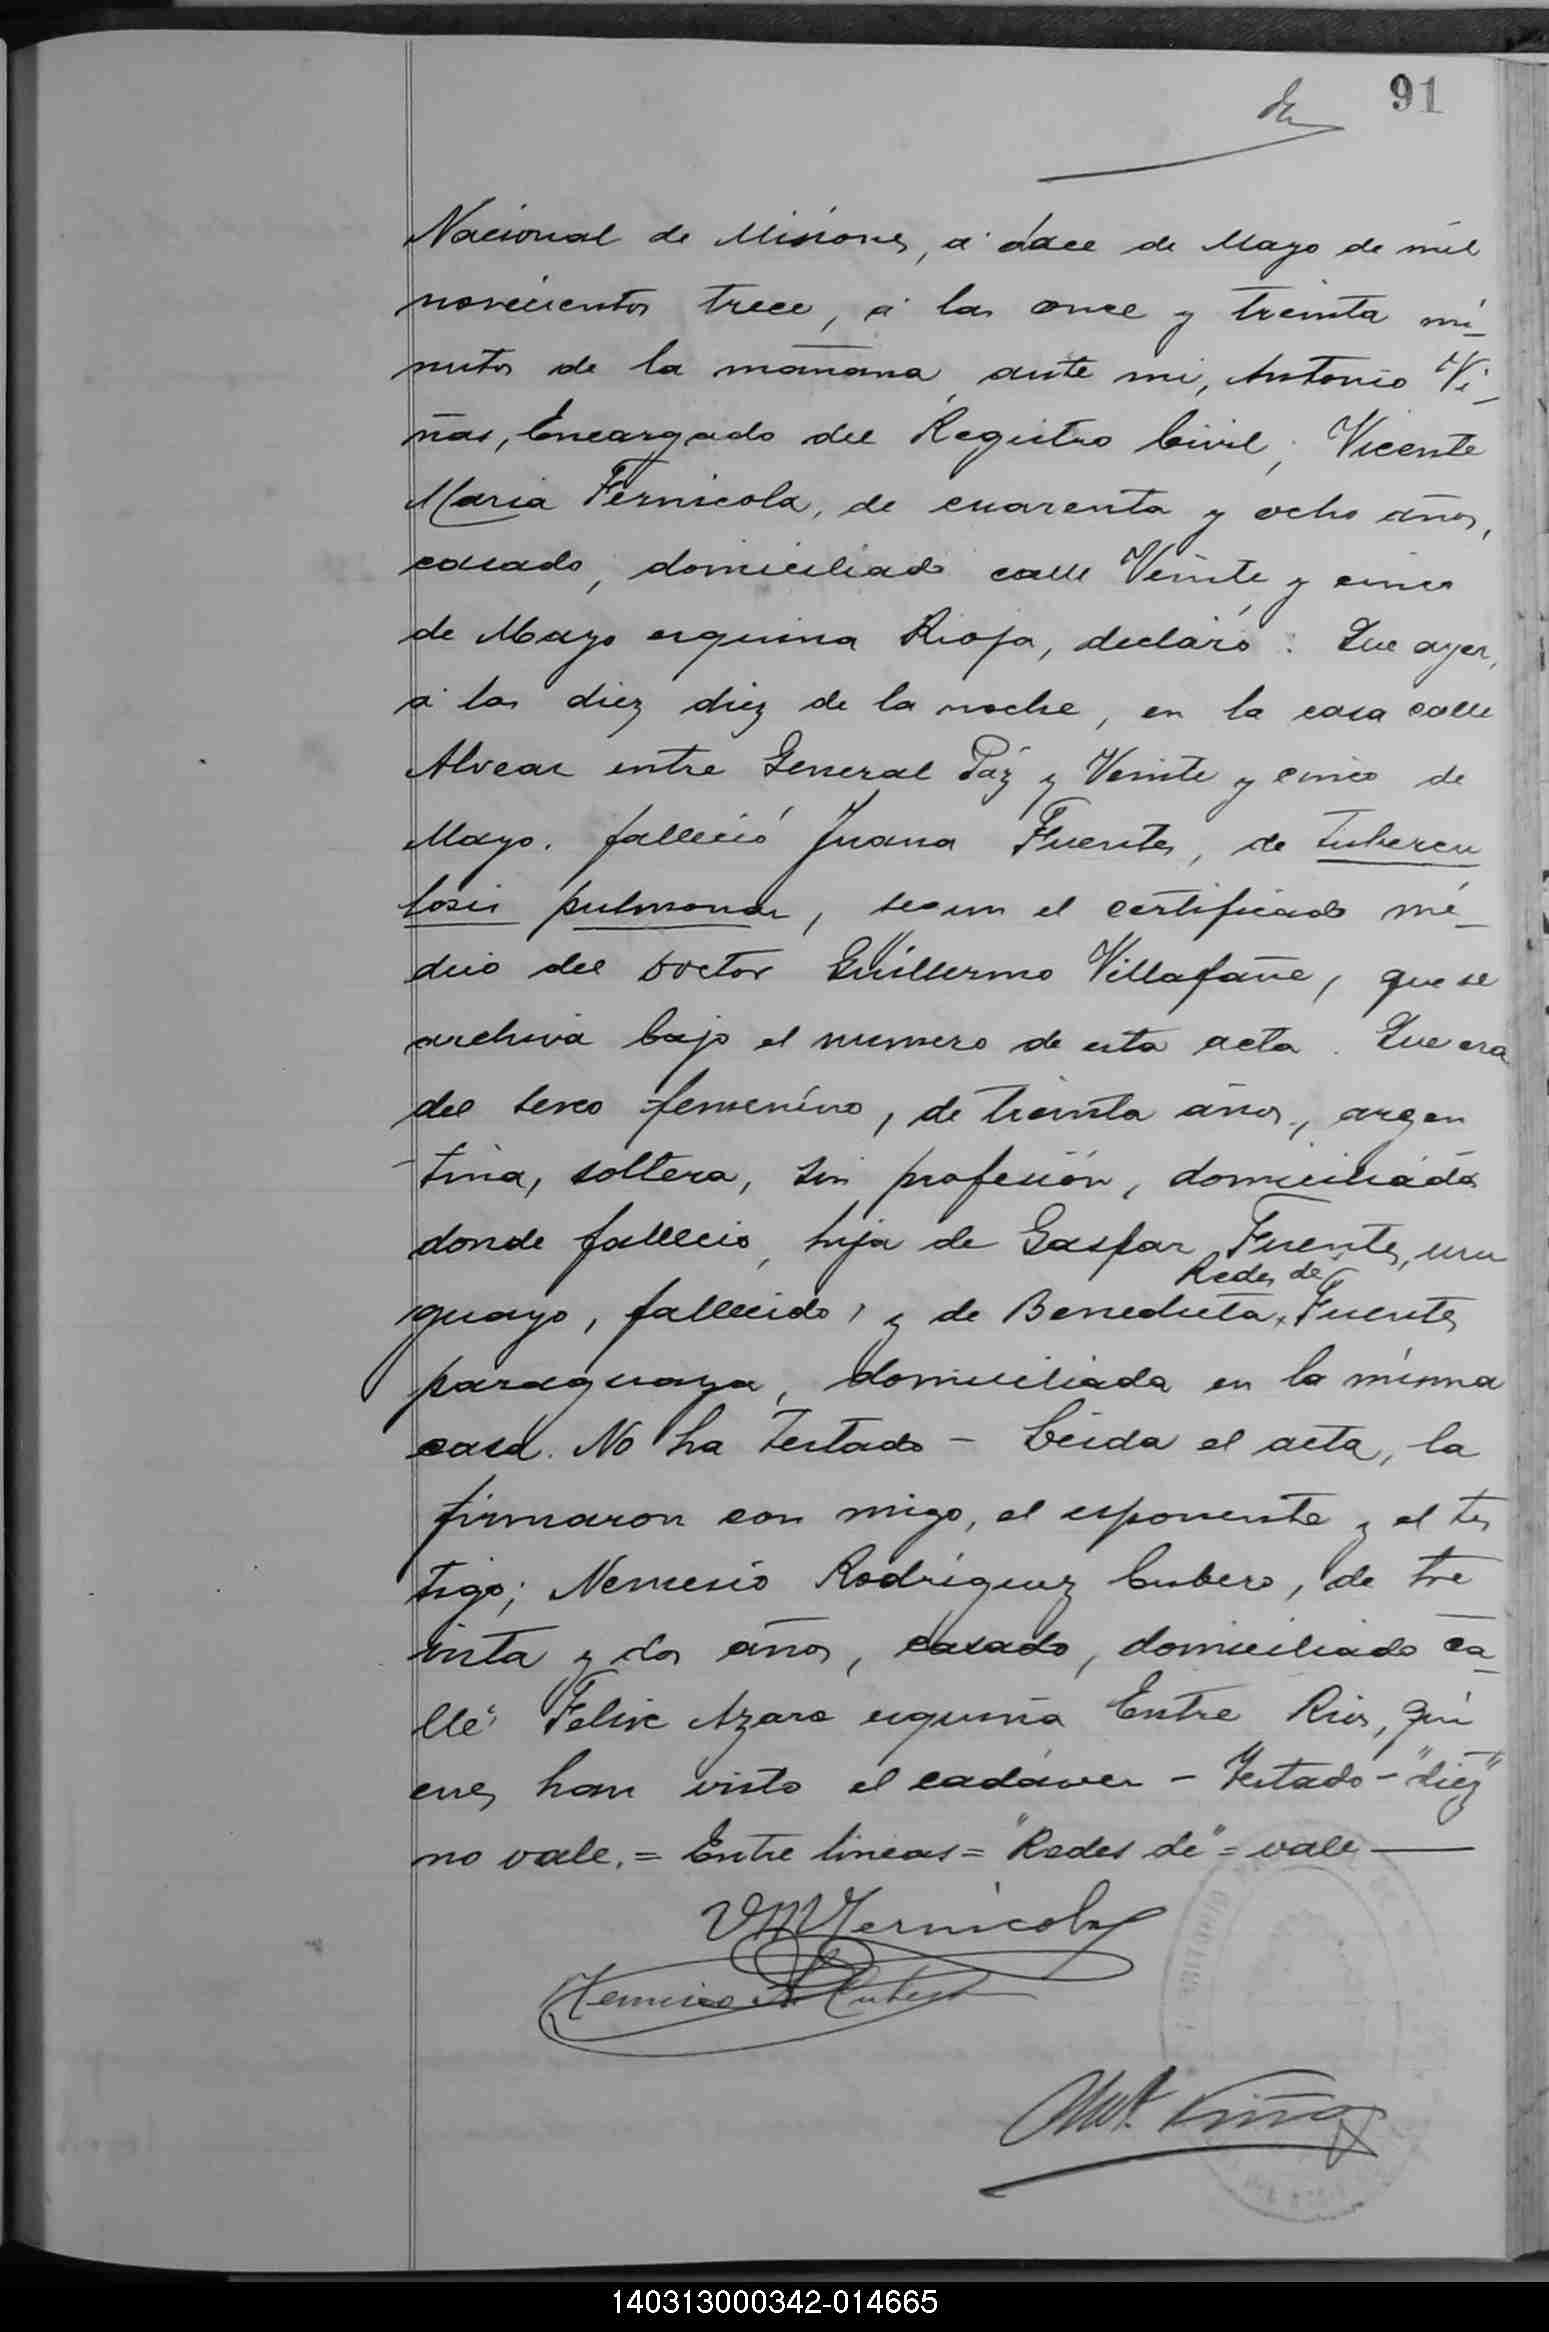 91
Nacional de Misiones, á doce de Mayo de mil
novecientos trece, á las once y treinta mi-
nutos de la mañana, ante mi, Antonio Vi-
ñas, Encargado del Registro Civil; Vicente
Maria Fernicola, de cuarenta y ocho años,
casado, domiciliado calle Veinte y cinco
de Mayo esquina Rioja, declaró: Que ayer,
á las diez diez de la noche, en la casa calle
Alvear entre General Páz y Veinte y cinco de
Mayo, falleció Juana Fuentes, de tubercu
losis pulmonar, segun el certificado mé-
dico del Doctor Guillermo Villafañe, que se
archiva bajo el numero de esta acta. Que era
del sexo femenino, de treinta años, argen
tina, soltera, sin profesión, domiciliada
donde falleció, hija de Gaspar Fuentes, uru
Redes de
guayo, fallecido, y de Benedicta Fuentes
paraguaya, domiciliada en la misma
casa. No ha testado - Leida el acta, la
firmaron con migo, el esponente y el tes
tigo; Nemesio Rodríguez Cubero, de tre
inta y dos años, casado, domiciliado ca-
lle Felix Azara esquina Entre Rios, qui
enes han visto el cadáver - Testado - "diez"
no vale. = Entre lineas = "Redes de" = vale
VMFernicola
Nemesio R. Cubero
Ant. Viñas
140313000342-014665